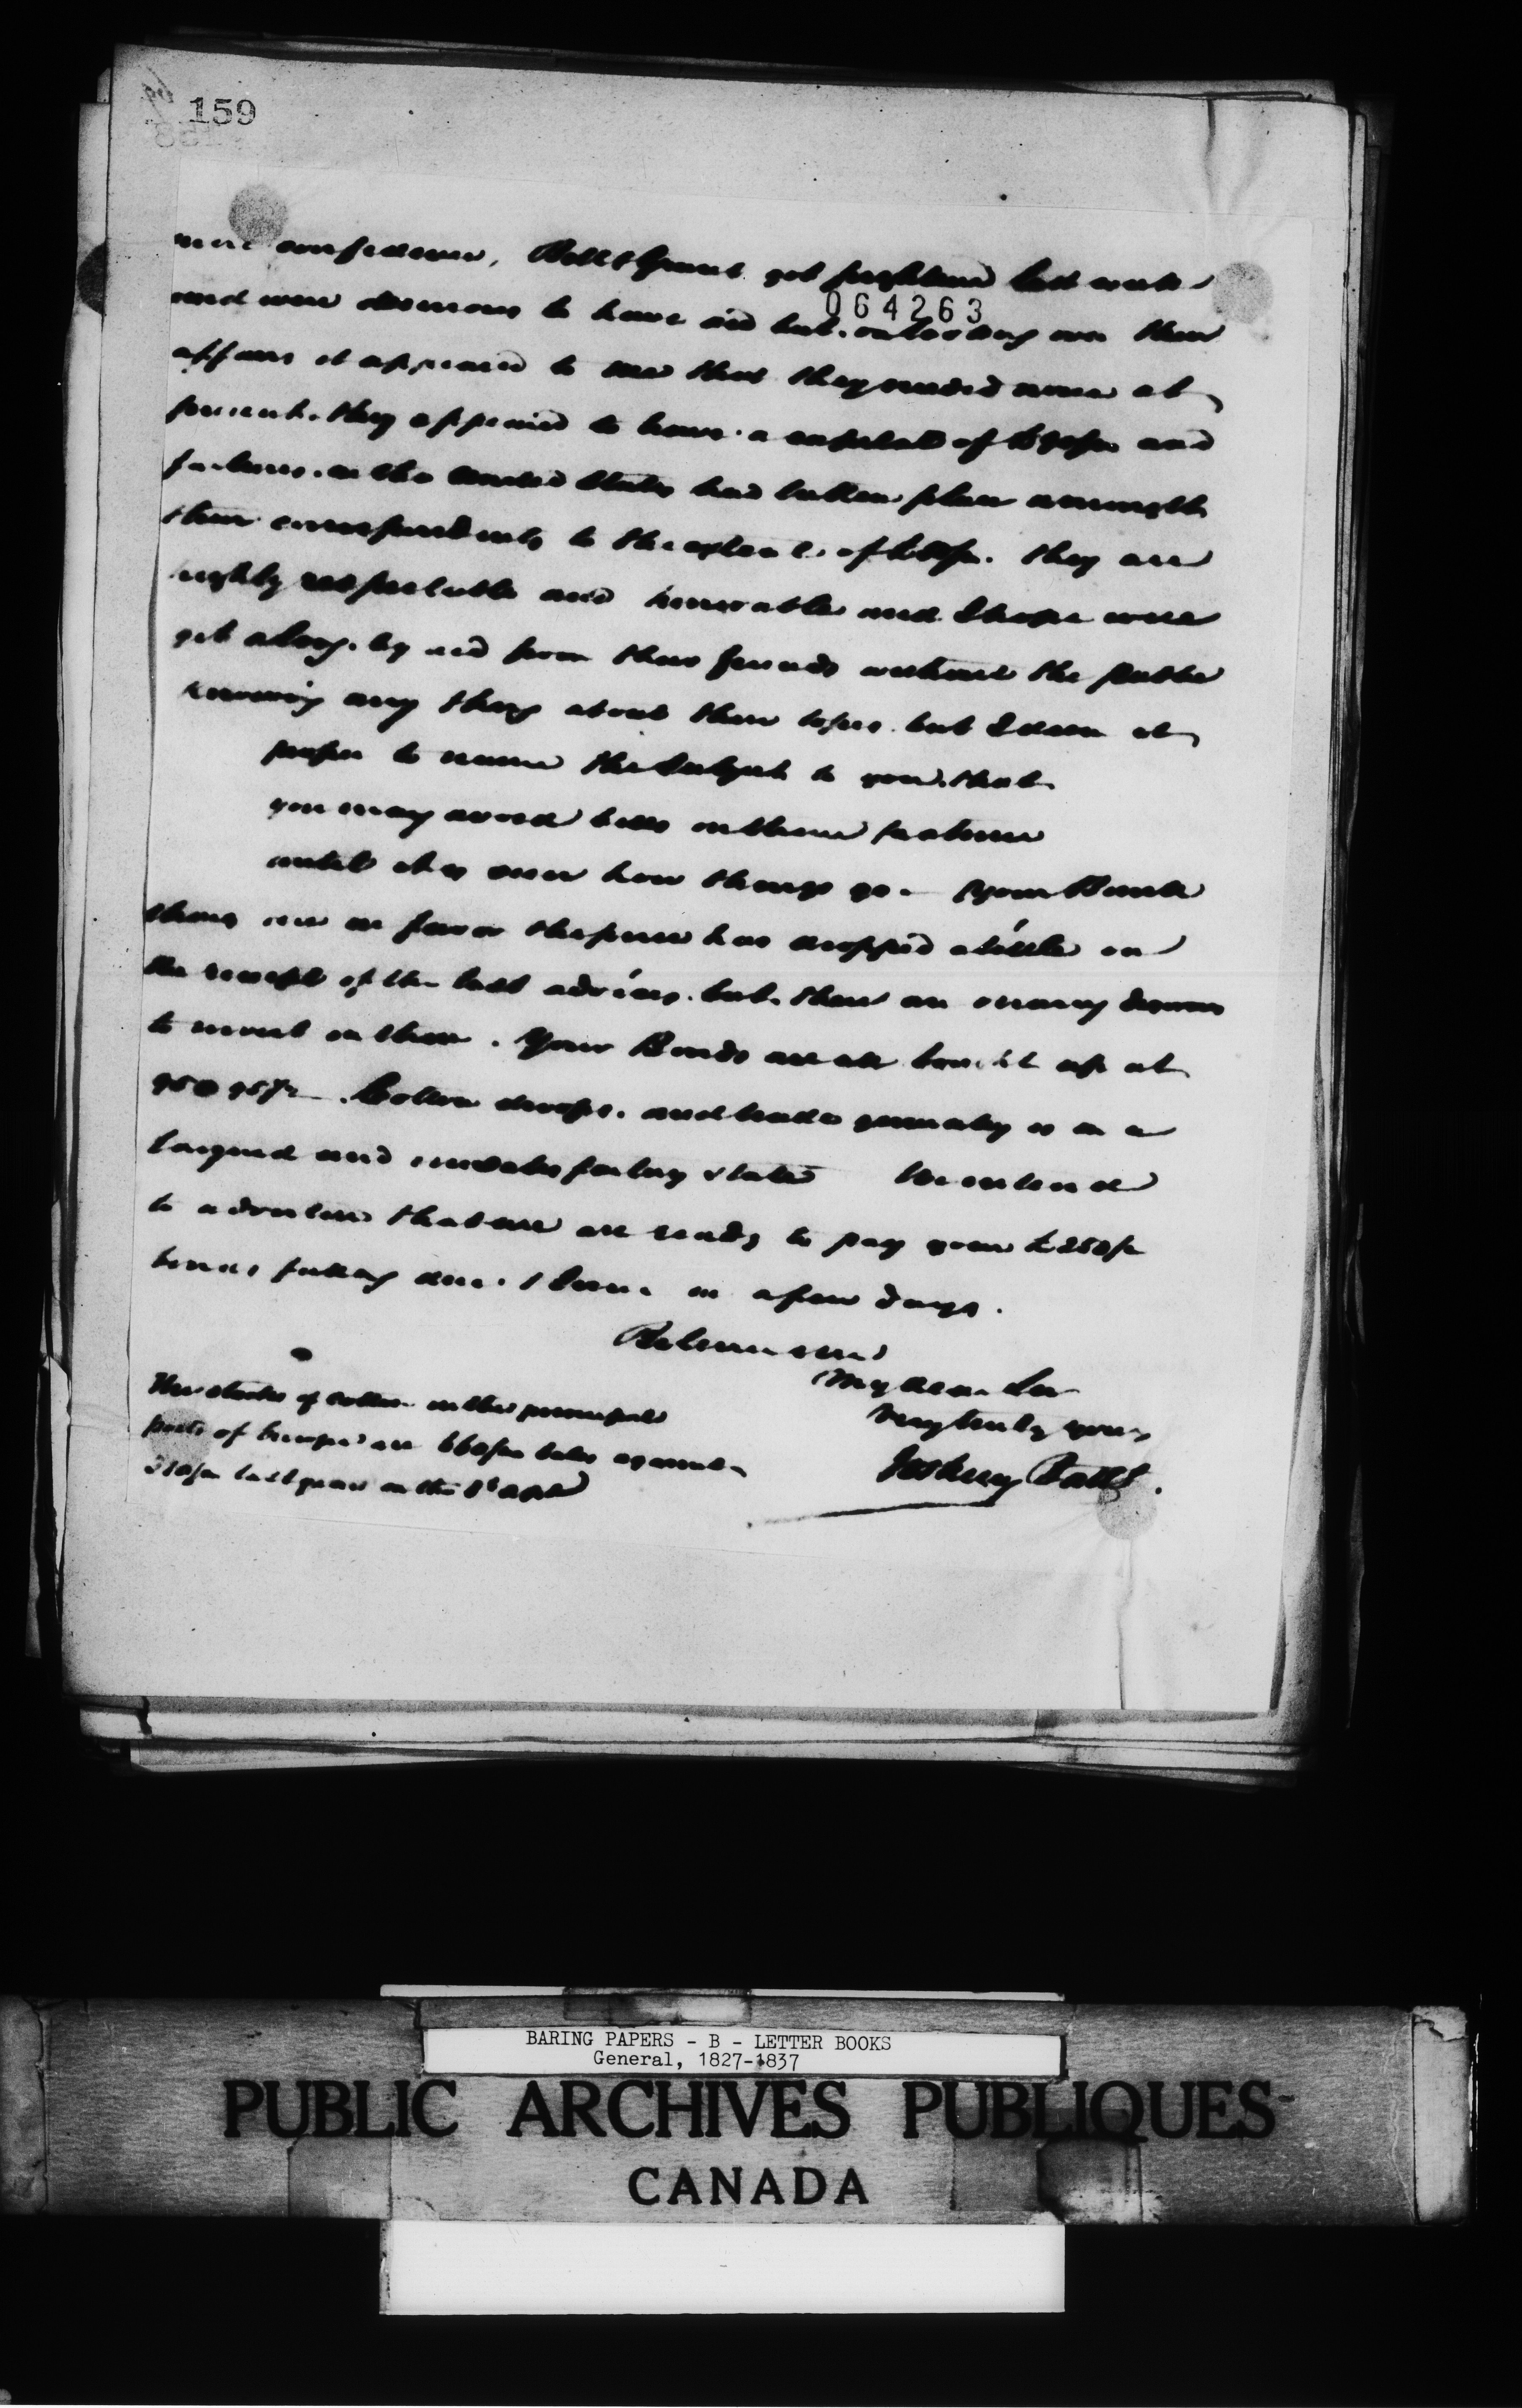 159
more confidence, Bolt & Grant got frightened last week
064263
and were desirous to have aid but on looking over their
affairs it appeared to me that they needed none at
present. they appeared to have a capital of and
failures in the United States had taken place amongst
their correspondents to the extent of they are
highly respectable and honorable and I hope will
get along by aid from their friends without the public
knowing any thing about their losses but I deem it
proper to name the subject to you that
you may avoid bills on them
until it is seen how things go. Your Bank
shares are in favor the price has dropped a little on
the receipt of the last advices but there are many
to invest in them. Your Bonds are all bought up at
95 @ 95½ Cotton droops and trade generally is in a
languid and unsatisfactory state We intend
to advertise that we are ready to pay your £250/m
bonds falling due in a few days.
I remain
My dear Sir
Very truly yours
Joshua Bates.
The stocks of cotton in the principal
ports of Europe are bales against
last year on the
BARING PAPERS - B - LETTER BOOKS
General, 1827-1837
PUBLIC ARCHIVES PUBLIQUES
CANADA